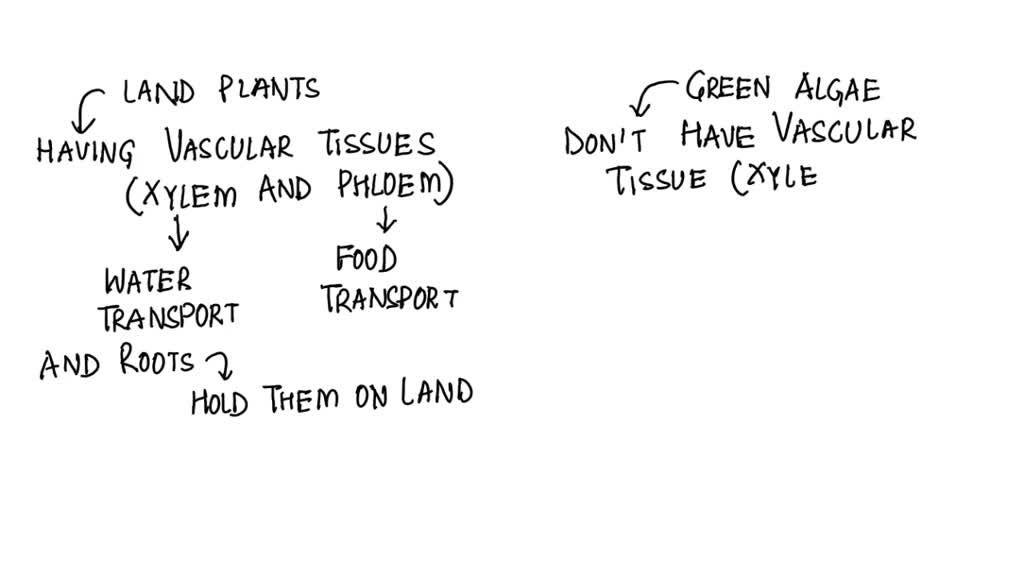 LAND PLANTS
HAVING VASCULAR TISSUES
(XYLEM AND PHLOEM)
WATER
TRANSPORT
FOOD
TRANSPORT
AND ROOTS
HOLD THEM ON LAND
GREEN ALGAE
DON'T HAVE VASCULAR
TISSUE (XYLE